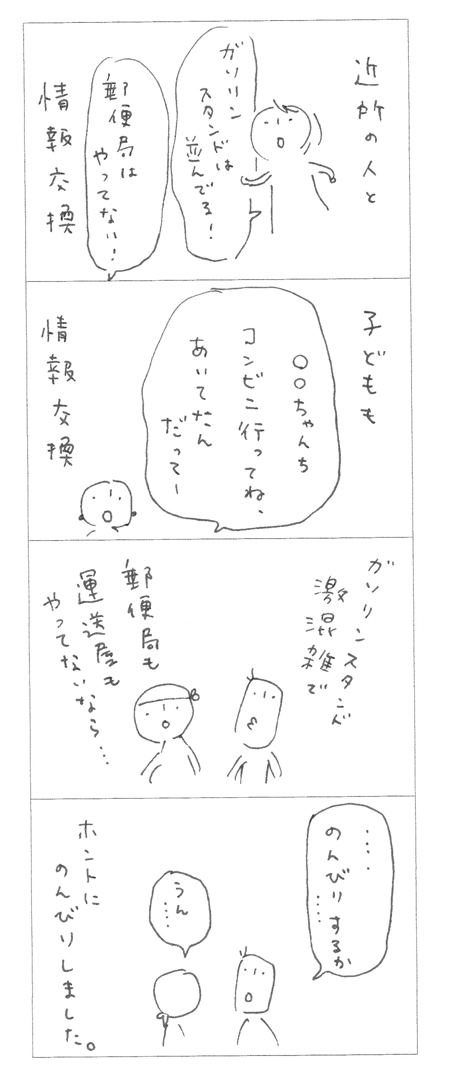 近所の人と
ガソリン
スタンドは
並んでる！
郵便局は
やってない！
情報交換
子どもも
○○ちゃんち
コンビニ行ってね、
あいてたん
だってー
情報交換
ガソリンスタンド
激混雑で
郵便局も
運送屋も
やってないなら…
‥‥
のんびりするか
‥‥
うん
‥‥
ホントに
のんびりしました。